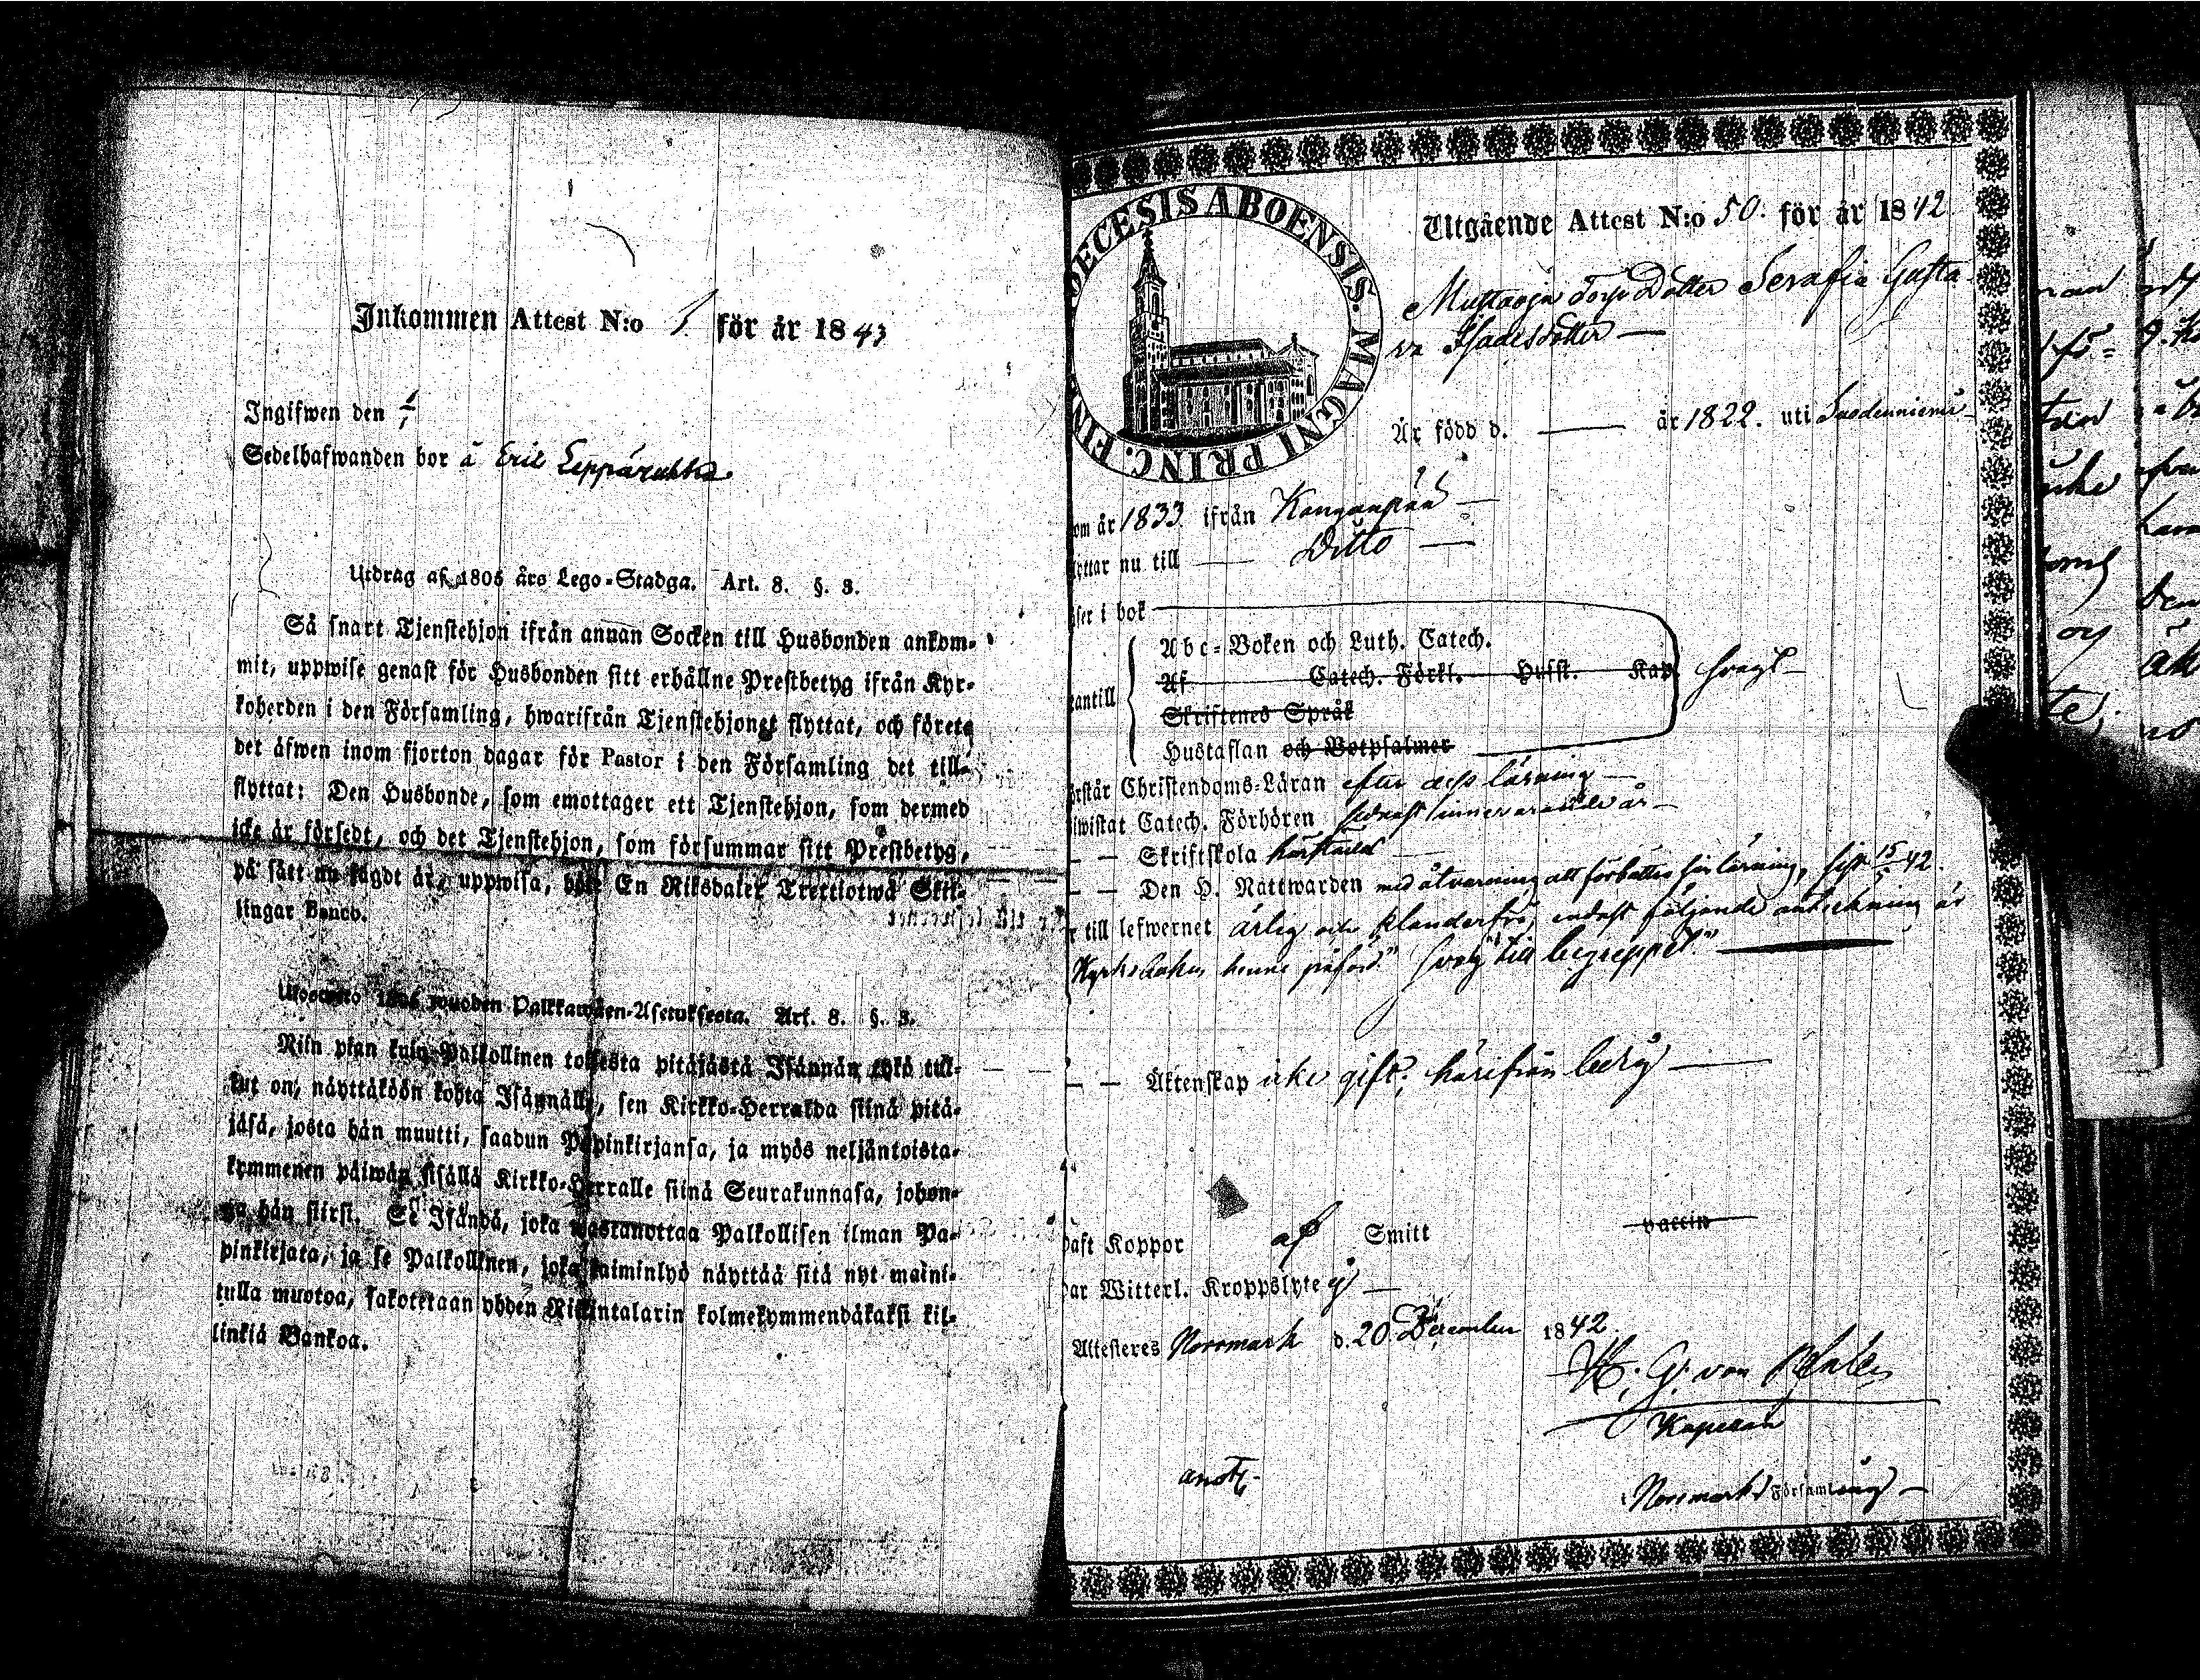 Inkommen Attest N:o 1. för år 1843
Ingifwen den
Sedelhafwanden bor å Eric Leppäruhka
Utdrag af 1805 års Lego-Stadga. Art. 8. §. 3.
Så snart Tjenstehjon ifrån annan Socken till Husbonden ankom-
mit, uppwise genast för Husbonden sitt erhållne Prestbetyg ifrån Kyr-
koherden i den Församling, hwarifrån Tjenstehjonet flyttat, och förete
det äfwen inom fjorton dagar för Pastor i den Församling det till-
flyttat: Den Husbonde, som emottager ett Tjenstehjon, som dermed
icke är försedt, och det Tjenstehjon, som försummar sitt Prestbetyg,
på sätt nu sagdt är, uppwisa, böte En Riksdaler Trettiotwå Skil-
lingar Banco.
Ulosotto 1805 wuoden Palkkawäen-Asetuksesta. Art. 8. §. 3.
Niin pian kuin Palkollinen toisesta pitäjästä Isännän tykö tul-
lut on, näyttäköön kohta Isännälle, sen Kirkko-Herralda siinä pitä-
jäsä, josta hän muutti, saadun Papinkirjansa, ja myös neljäntoista-
kymmenen päiwän sisällä Kirkko-Herralle siinä Seurakunnasa, johon-
ga hän siirsi. Se Isändä, joka wastanottaa Palkollisen ilman Pa-
pinkirjata, ja se Palkollinen, joka laiminlyö näyttää sitä nyt maini-
tulla muotoa, sakotetaan yhden Riikintalarin kolmekymmendäkaksi kil-
linkiä Bankoa.
DECESIS ABOENSIS. MAGNI PRINC. FIN
Utgående Attest N:o 50. för år 1842
Muttaoja Torp Dotter Serafia Gusta-
va Isaksdotter
År född d. — år 1822. uti Suodenniemi
om år 1833 ifrån Kanganpää
lyttar nu till — Ditto
äser i bok
Abc-Boken och Luth. Catech.
Af Catech. Förkl. Hufst. Kap. svagt
antill
Skriftenes Språk
Hustaflan och Botpsalmer
örstår Christendoms-Läran efter dess läsning
iwistat Catech. Förhören sednast innevarande år
— — Skriftskola
— — Den H. Nattwarden med åtvarning att förbättra sin läsning, sist 42.
till lefwernet ärlig och klanderfri, endast följande anteckning är
Kyrkoboken henne påförd: "svag till begreppet."
— — Äktenskap icke gift; härifrån ledig
aft Koppor af Smitt vaccin
ar Witterl. Kroppslyte ej
Attesteres Norrmark d. 20 December 1842.
H. G. von
Kapellan
Norrmarks Församling